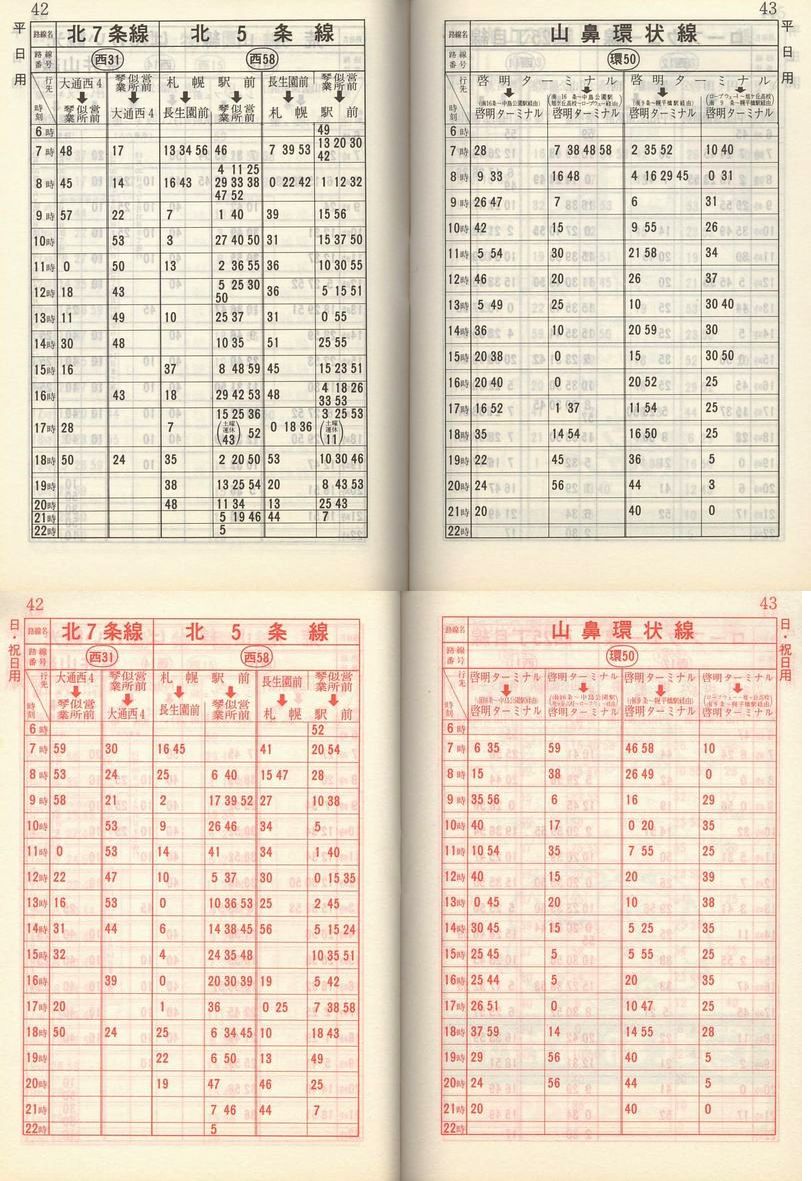 42
平日用
路線名 北7条線 北5条線
路線番号 西31 西58
行先 大通西4 琴似営業所前 札幌駅前 長生園前 琴似営業所前
時刻 琴似営業所前 大通西4 長生園前 琴似営業所前 札幌駅前
6時 49
7時 48 17 13 34 56 46 7 39 53 13 20 30 42
8時 45 14 16 43 4 11 25 29 33 38 47 52 0 22 42 1 12 32
9時 57 22 7 1 40 39 15 56
10時 53 3 27 40 50 31 15 37 50
11時 0 50 13 2 36 55 36 10 30 55
12時 18 43 5 25 30 50 36 5 15 51
13時 11 49 10 25 37 31 0 55
14時 30 48 10 35 51 25 55
15時 16 37 8 48 59 45 15 23 51
16時 43 18 29 42 53 48 4 18 26 33 53
17時 28 7 15 25 36 (土曜運休 43) 52 0 18 36 3 25 53 (土曜運休 11)
18時 50 24 35 2 20 50 53 10 30 46
19時 38 13 25 54 20 8 43 53
20時 48 11 34 13 25 43
21時 5 19 46 44 7
22時 5
43
平日用
路線名 山鼻環状線
路線番号 環50
行先 啓明ターミナル 啓明ターミナル
時刻 啓明ターミナル 啓明ターミナル 啓明ターミナル 啓明ターミナル
6時
7時 28 7 38 48 58 2 35 52 10 40
8時 9 33 16 48 4 16 29 45 0 31
9時 26 47 7 6 31
10時 42 15 9 55 26
11時 5 54 30 21 58 34
12時 46 20 26 37
13時 5 49 25 10 30 40
14時 36 10 20 59 30
15時 20 38 0 15 30 50
16時 20 40 0 20 52 25
17時 16 52 1 37 11 54 25
18時 35 14 54 16 50 25
19時 22 45 36 5
20時 24 56 44 3
21時 20 40 0
22時
42
日・祝日用
路線名 北7条線 北5条線
路線番号 西31 西58
行先 大通西4 琴似営業所前 札幌駅前 長生園前 琴似営業所前
時刻 琴似営業所前 大通西4 長生園前 琴似営業所前 札幌駅前
6時 52
7時 59 30 16 45 41 20 54
8時 53 24 25 6 40 15 47 28
9時 58 21 2 17 39 52 27 10 38
10時 53 9 26 46 34 5
11時 0 53 14 41 34 1 40
12時 22 47 10 5 37 30 0 15 35
13時 16 53 0 10 36 53 25 2 45
14時 31 44 6 14 38 45 56 5 15 24
15時 32 4 24 35 48 10 35 51
16時 39 0 20 30 39 19 5 42
17時 20 1 36 0 25 7 38 58
18時 50 24 25 6 34 45 10 18 43
19時 22 6 50 13 49
20時 19 47 46 25
21時 7 46 44 7
22時 5
43
日・祝日用
路線名 山鼻環状線
路線番号 環50
行先 啓明ターミナル 啓明ターミナル 啓明ターミナル 啓明ターミナル
時刻 啓明ターミナル 啓明ターミナル 啓明ターミナル 啓明ターミナル
6時
7時 6 35 59 46 58 10
8時 15 38 26 49 0
9時 35 56 6 16 29
10時 40 17 0 20 35
11時 10 54 35 7 55 25
12時 40 15 20 39
13時 0 45 20 10 38
14時 30 45 15 5 25 35
15時 25 45 5 5 55 25
16時 25 44 5 20 35
17時 26 51 0 10 47 25
18時 37 59 14 14 55 28
19時 29 56 40 5
20時 24 56 44 5
21時 20 40 0
22時